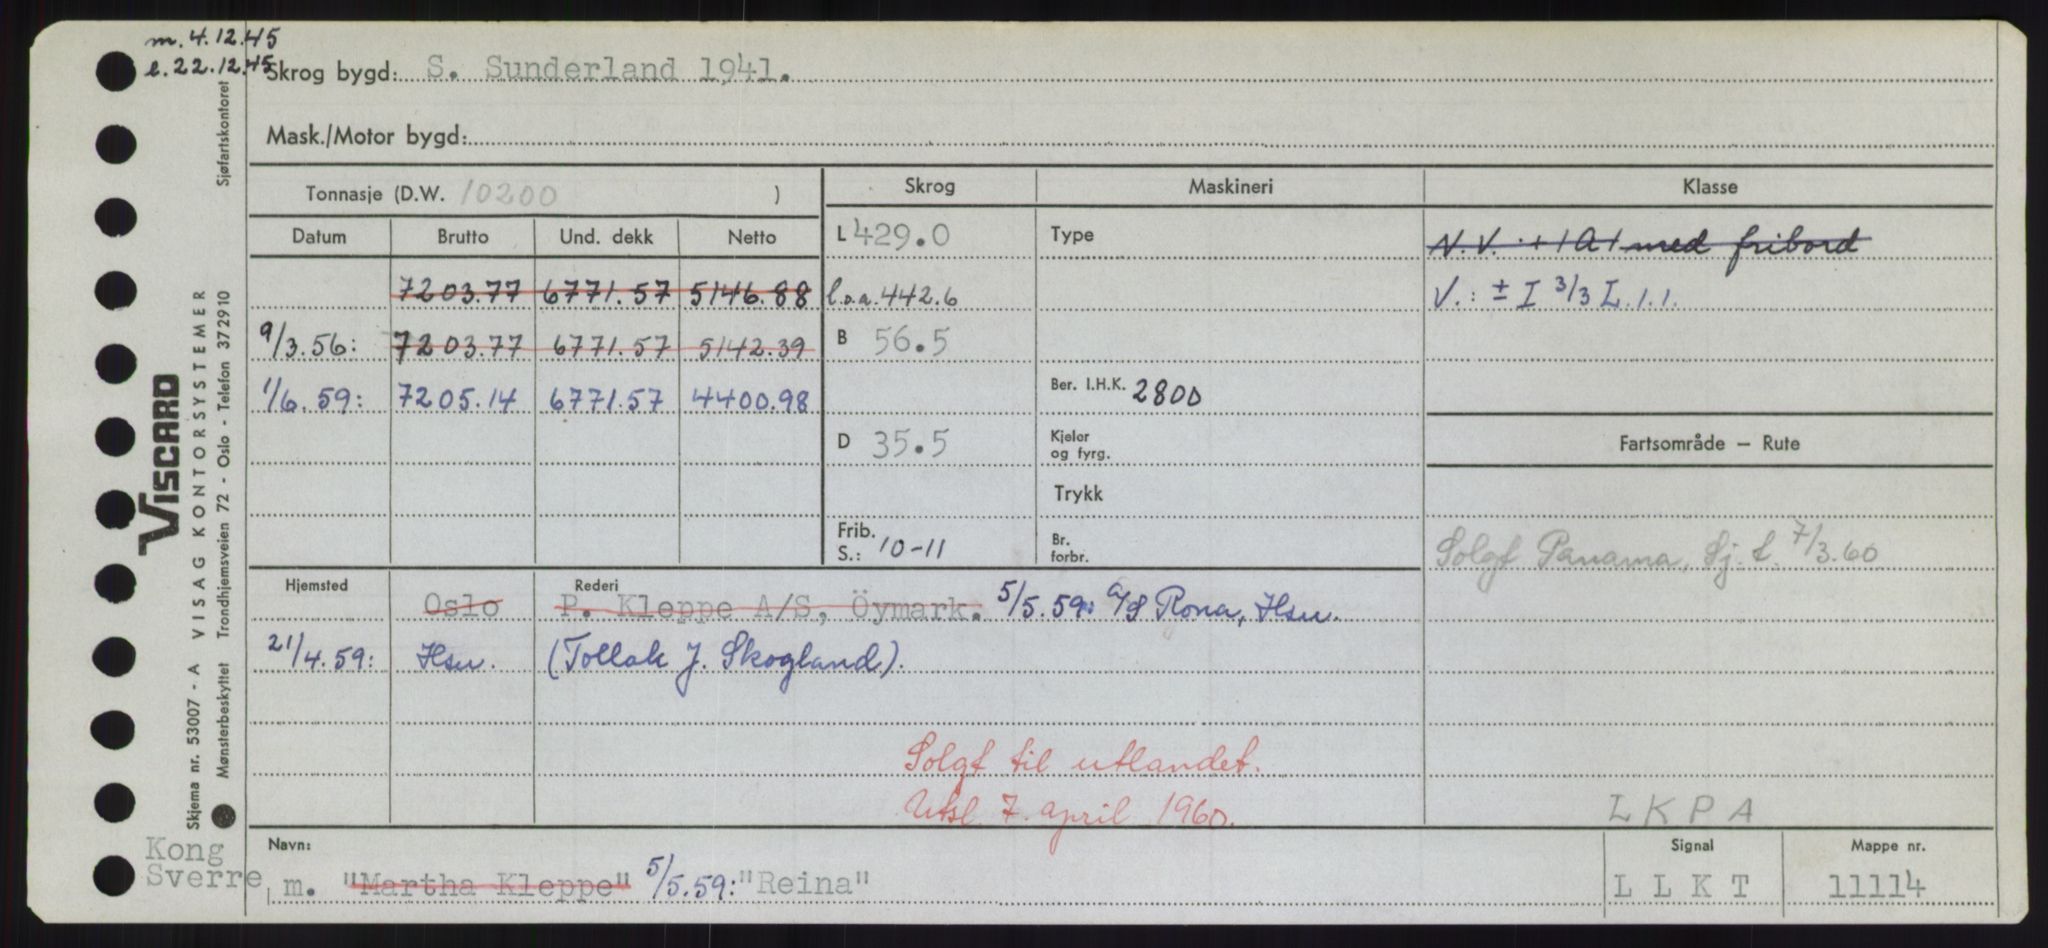 m. 4.12.45
l. 22.12.45
Skrog bygd: S. Sunderland 1941.
Mask./Motor bygd:
Tonnasje (D.W. 10200 )
Skrog Maskineri Klasse
Datum Brutto Und. dekk Netto
L 429.0 Type N.V. + 1A1 med fribord
7203.77 6771.57 5146.88 l.o.a. 442.6 V.: ± I 3/3 L.1.1.
9/3.56: 7203.77 6771.57 5142.39 B 56.5
1/6.59: 7205.14 6771.57 4400.98 Ber. I.H.K. 2800
D 35.5 Kjeler og fyrg. Fartsområde – Rute
Trykk
Frib. S.: 10-11 Br. forbr. Solgt Panama, Sj. t. 7/3.60
Hjemsted Rederi
Oslo P. Kleppe A/S, Öymark. 5/5.59: A/S Rona, Hsu.
21/4.59: Hsu. (Tollak J. Skogland).
Solgt til utlandet.
Utsl. 7. april 1960.
L K P A
Navn: Signal Mappe nr.
Kong Sverre
m. "Martha Kleppe" 5/5.59: "Reina" L L K T 11114
Sjøfartskontoret
VISCARD
VISAG KONTORSYSTEMER
Trondhjemsveien 72 - Oslo - Telefon 372910
Skjema nr. 53007 - A
Mønsterbeskyttet